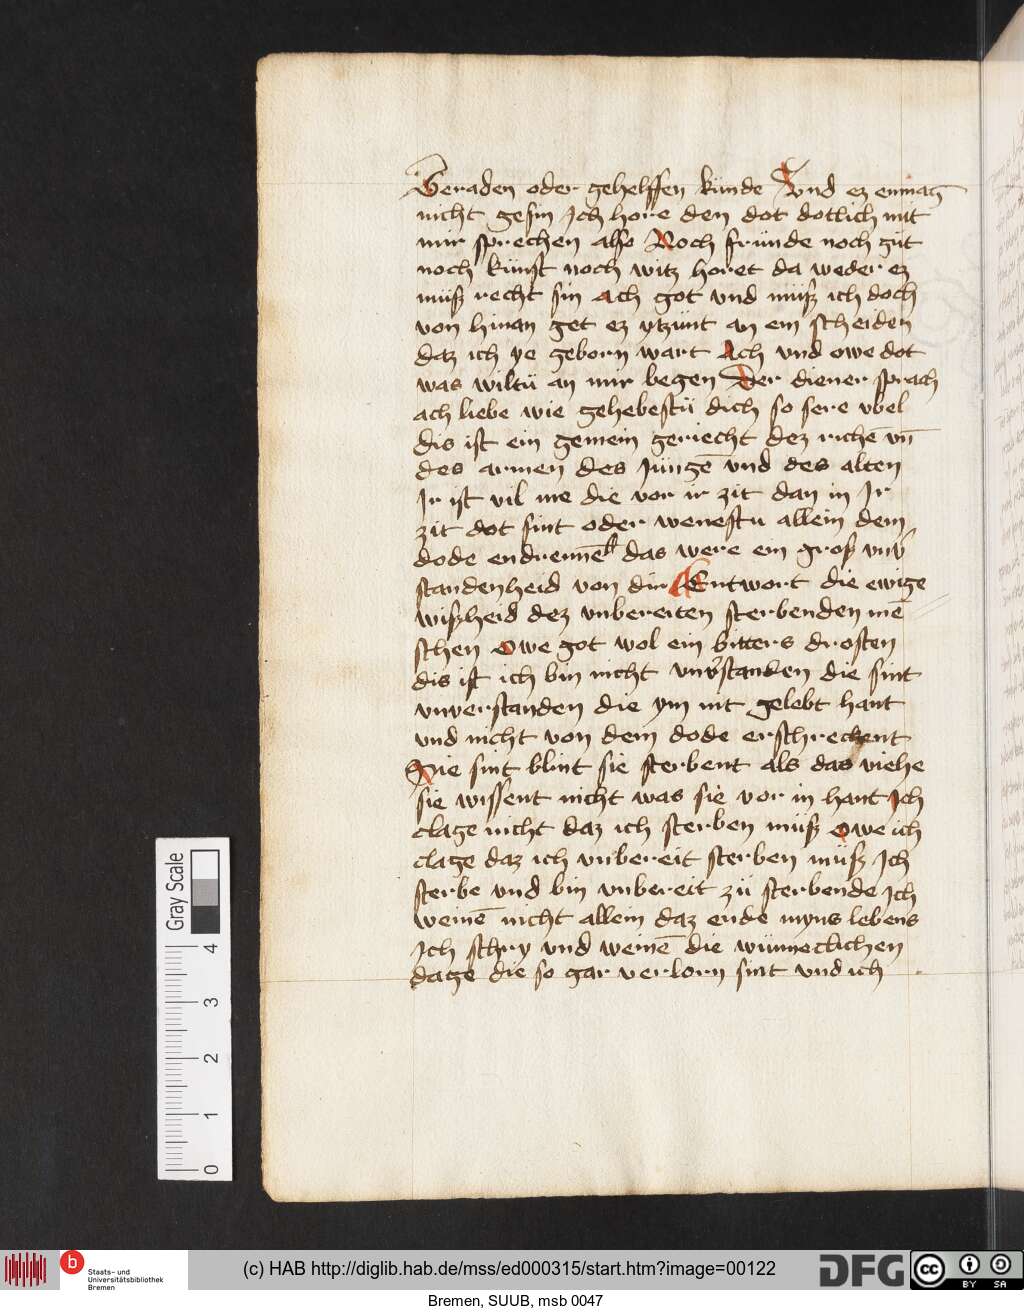 Geraden oder gehelffen künde Vnd ez enmag
nicht gesin Jch hore den dot dotlich mit
mir sprechen also Noch fründe noch güt
noch künst noch witz horet da weder ez
müß recht sin ach got vnd müß ich doch
von hinan get ez ytzünt an ein scheiden
daz ich ye geborn wart Ach vnd owe dot
was wiltü an mir begen Der diener sprach
ach liebe wie gehebestü dich so sere vbel
dis ist ein gemein geriecht dez richē vn̄
des armen des Jüngē vnd des alten
Jr ist vil me die vor ir zit dan in Jr
zit dot sint oder wenestu allein dem
dode endrennē das were ein groß vnv̾
standenheid von dir Entwort die ewige
wißheid dez vnbereiten sterbenden mē
schen owe got wol ein bitters drosten
dis ist ich bin nicht vnv̾standen die sint
vnverstanden die ym nit gelebt hant
vnd nicht von dem dode erschreckent
Sie sint blint sie sterbent als das viehe
sie wissent nicht was sie vor in hant Jch
clage nicht daz ich sterben müß owe ich
clage daz ich vnbereit sterben müß Jch
sterbe vnd bin vnbereit zü sterbende Jch
weinē nicht allein daz ende myns lebens
Jch schry vnd weinē die wünneclichen
dage die so gar verlorn sint vnd ich
Gray Scale
0 1 2 3 4
b
Staats- und
Universitätsbibliothek
Bremen
(c) HAB http://diglib.hab.de/mss/ed000315/start.htm?image=00122
DFG
cc BY SA
Bremen, SUUB, msb 0047